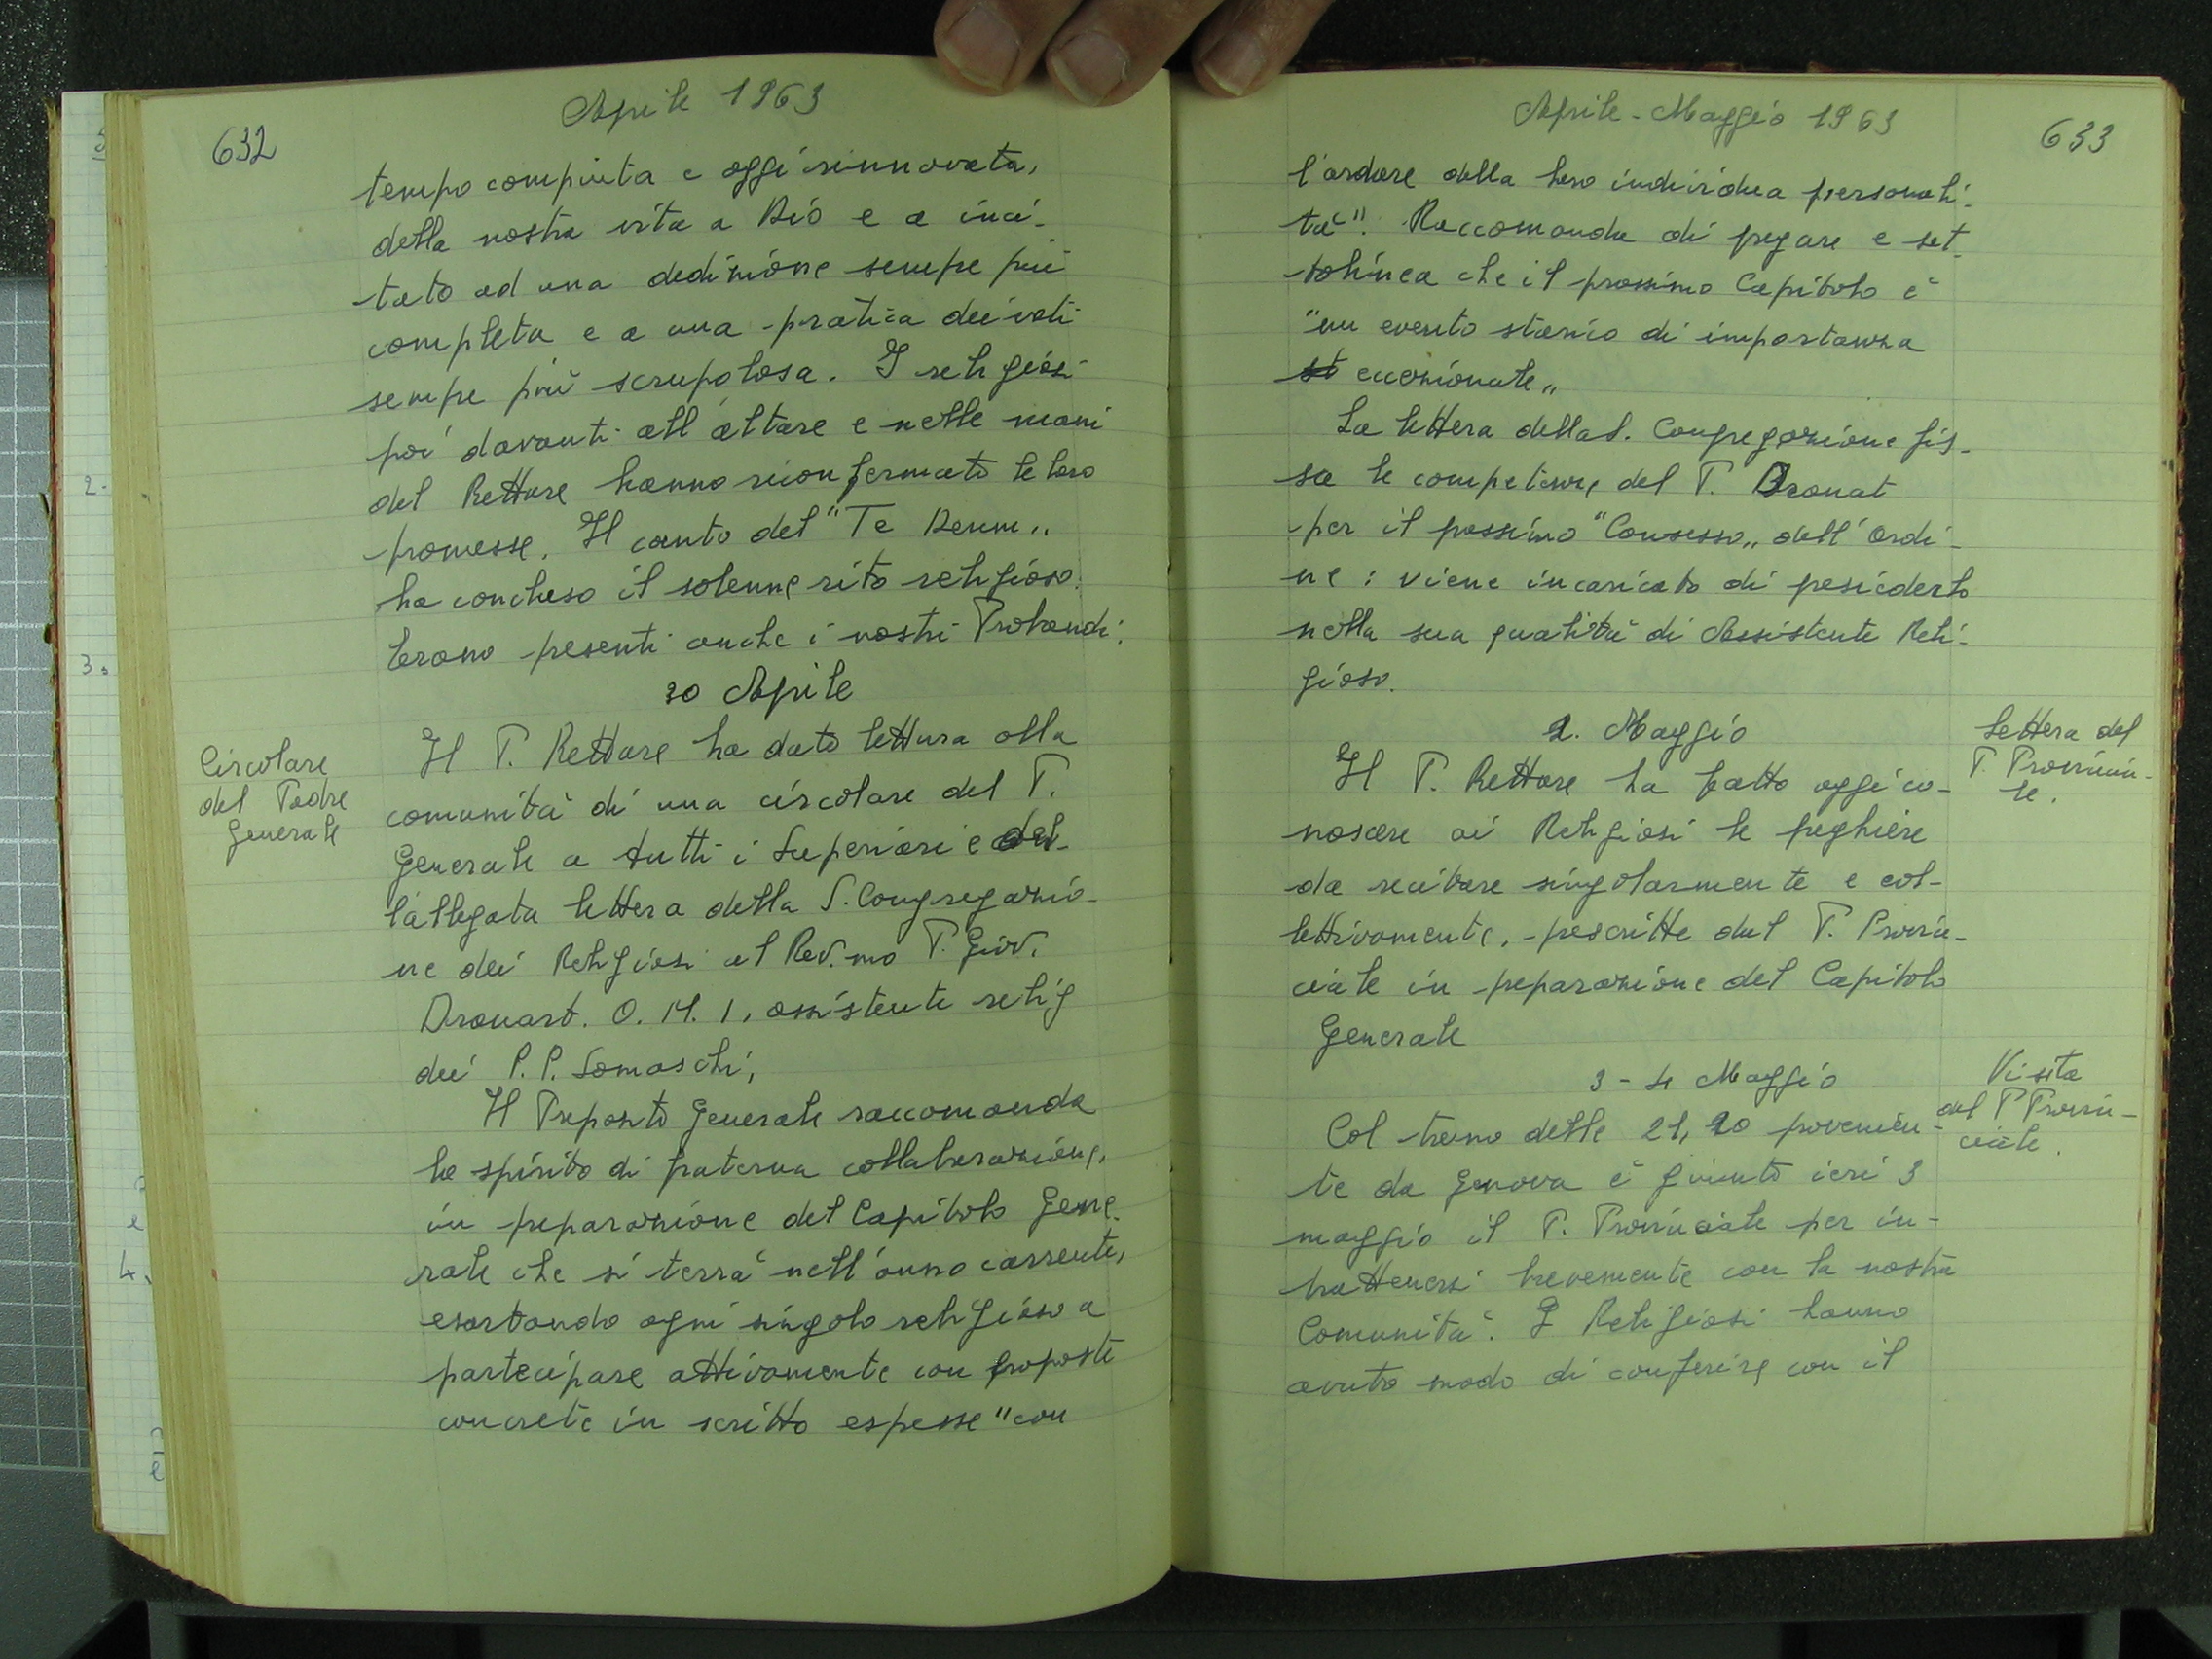 632
Aprile 1963
tempo compiuta e oggi rinnovata,
della nostra vita a Dio e a inci-
tato ad una dedizione sempre più
completa e a una pratica dei voti
sempre più scrupolosa. I religiosi
poi davanti all'altare e nelle mani
del Rettore hanno riconfermato le loro
promesse. Il canto del "Te Deum"
ha concluso il solenne rito religioso.
Erano presenti anche i nostri Probandi.
30 Aprile
Circolare
del Padre
Generale
Il P. Rettore ha dato lettura alla
comunità di una circolare del P.
Generale a tutti i Superiori e del-
l'allegata lettera della S. Congregazio-
ne dei Religiosi al Rev.mo P. Giov.
Drouart. O. M. I, assistente relig
dei P.P. Somaschi,
Il Preposito Generale raccomanda
lo spirito di fraterna collaborazione,
in preparazione del Capitolo Gene-
rale che si terrà nell'anno corrente,
esortando ogni singolo religioso a
partecipare attivamente con proposte
concrete in scritto espesse "con
Aprile - Maggio 1963
633
l'ardore della loro individua personali-
tà". Raccomanda di pregare e sot-
tolinea che il prossimo Capitolo è
"un evento storico di importanza
eccezionale"
La lettera della S. Congregazione fis-
sa le competenze del P. Drouat
per il prossimo "Consesso" dell'Ordi-
ne: viene incaricato di presiederlo
nella sua qualità di Assistente Reli-
gioso.
2. Maggio
Lettera del
P. Provincia-
le.
Il P. Rettore ha fatto oggi co-
noscere ai Religiosi le preghiere
da recitare singolarmente e col-
lettivamente, prescritte dal P. Provin-
ciale in preparazione del Capitolo
Generale
3 - 4 Maggio
Visita
del P Provin-
ciale.
Col treno delle 21,20 provenien-
te da Genova è giunto ieri 3
maggio il P. Provinciale per in-
trattenersi brevemente con la nostra
Comunità. I Religiosi hanno
avuto modo di conferire con il